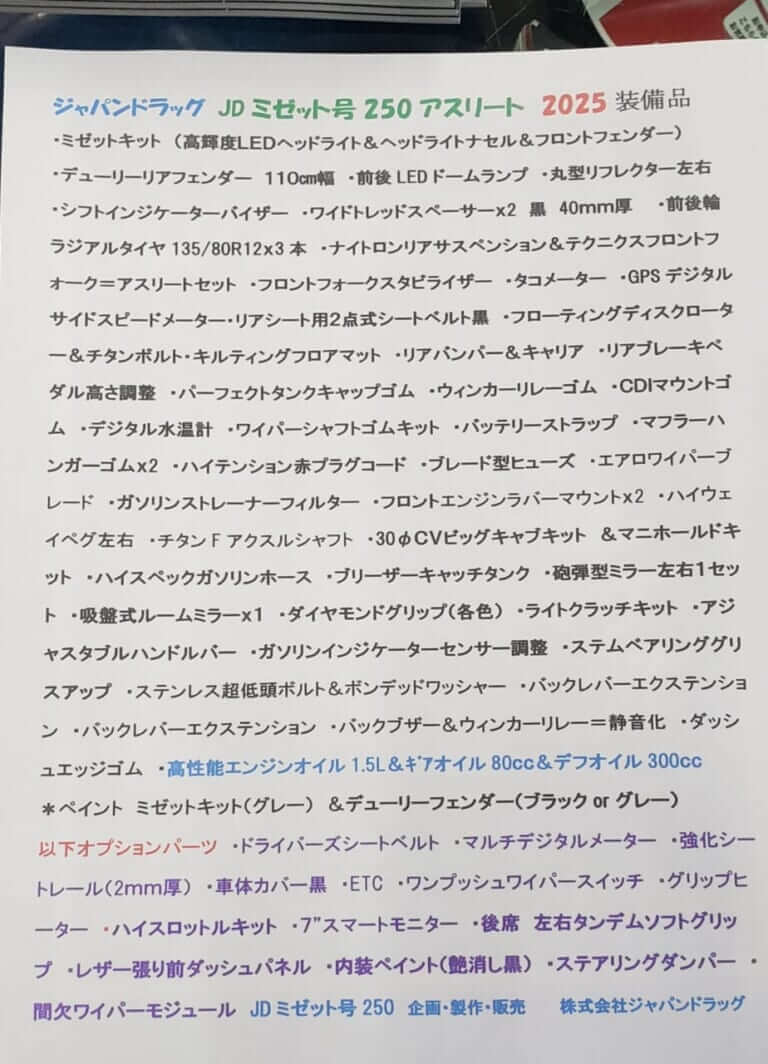 ジャパンドラッグ JDミゼット号250アスリート 2025装備品
・ミゼットキット （高輝度LEDヘッドライト＆ヘッドライトナセル＆フロントフェンダー）
・デューリーリアフェンダー 110cm幅 ・前後LEDドームランプ ・丸型リフレクター左右
・シフトインジケーターバイザー ・ワイドトレッドスペーサーx2 黒 40mm厚 ・前後輪
ラジアルタイヤ135/80R12x3本 ・ナイトロンリアサスペンション＆テクニクスフロントフ
ォーク＝アスリートセット ・フロントフォークスタビライザー ・タコメーター ・GPSデジタル
サイドスピードメーター・リアシート用2点式シートベルト黒 ・フローティングディスクロータ
ー＆チタンボルト・キルティングフロアマット ・リアバンパー＆キャリア ・リアブレーキペ
ダル高さ調整 ・パーフェクトタンクキャップゴム ・ウィンカーリレーゴム ・CDIマウントゴ
ム ・デジタル水温計 ・ワイパーシャフトゴムキット ・バッテリーストラップ ・マフラーハ
ンガーゴムx2 ・ハイテンション赤プラグコード ・ブレード型ヒューズ ・エアロワイパーブ
レード ・ガソリンストレーナーフィルター ・フロントエンジンラバーマウントx2 ・ハイウェ
イペグ左右 ・チタンFアクスルシャフト ・30φCVビッグキャブキット ＆マニホールドキ
ット ・ハイスペックガソリンホース ・ブリーザーキャッチタンク ・砲弾型ミラー左右1セッ
ト ・吸盤式ルームミラーx1 ・ダイヤモンドグリップ(各色) ・ライトクラッチキット ・アジ
ャスタブルハンドルバー ・ガソリンインジケーターセンサー調整 ・ステムベアリンググリ
スアップ ・ステンレス超低頭ボルト＆ボンデッドワッシャー ・バックレバーエクステンショ
ン ・バックレバーエクステンション ・バックブザー＆ウィンカーリレー＝静音化 ・ダッシ
ュエッジゴム ・高性能エンジンオイル1.5L＆ｷﾞｱオイル80cc＆デフオイル300cc
＊ペイント ミゼットキット(グレー) ＆デューリーフェンダー(ブラックorグレー)
以下オプションパーツ ・ドライバーズシートベルト ・マルチデジタルメーター ・強化シー
トレール(2mm厚) ・車体カバー黒 ・ETC ・ワンプッシュワイパースイッチ ・グリップヒ
ーター ・ハイスロットルキット ・7”スマートモニター ・後席 左右タンデムソフトグリッ
プ ・レザー張り前ダッシュパネル ・内装ペイント(艶消し黒) ・ステアリングダンパー ・
間欠ワイパーモジュール JDミゼット号250 企画・製作・販売 株式会社ジャパンドラッグ